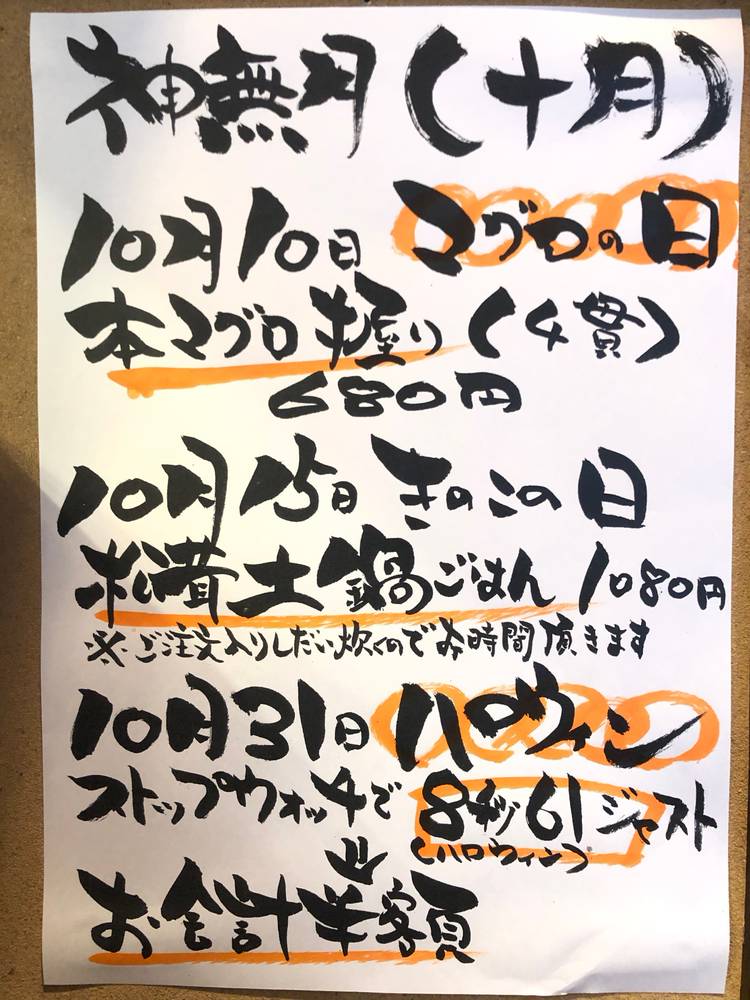 神無月(十月)
10月10日 マグロの日
本マグロ握り(4貫)
680円
10月15日 きのこの日
松茸土鍋ごはん 1080円
※ご注文入りしだい炊くのでお時間頂きます
10月31日 ハロウィン
ストップウォッチで 8秒61ジャスト
(ハロウィン)
お会計半額